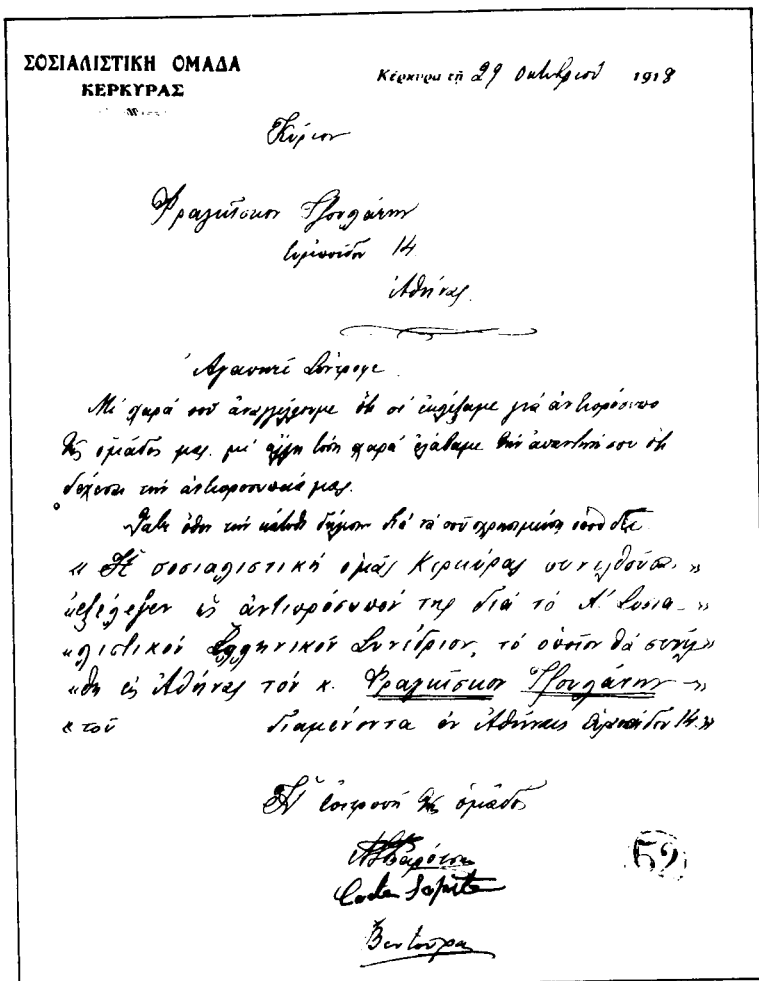 ΣΟΣΙΑΛΙΣΤΙΚΗ ΟΜΑΔΑ
ΚΕΡΚΥΡΑΣ
Κέρκυρα τῇ 29 Οκτωβρίου 1918
Κύριον
Φραγκῖσκον Τζουλάτην
14
Ἀθήνας
Ἀγαπητέ Σύντροφε
Μέ χαρά σοῦ ἀναγγέλλουμε ὅτι σέ ἐκλέξαμε γιά ἀντιπρόσωπο
τῆς ὁμάδος μας. μέ ἄλλη τόση χαρά ἐλάβαμε τήν ἀπάντησή σου ὅτι
δέχεσαι τήν ἀντιπροσωπεία μας.
τήν κάτωθι διά νά σοῦ
« Ἡ σοσιαλιστική ὁμάς Κερκύρας συνελθοῦσα »
« ἐξέλεξεν ὡς ἀντιπρόσωπόν της διά τό Α΄ Σοσια- »
« λιστικόν Ἑλληνικόν Συνέδριον, τό ὁποῖον θά συνέλ »
« θῃ εἰς Ἀθήνας τόν κ. Φραγκῖσκον Τζουλάτην - »
« τοῦ διαμένοντα ἐν Ἀθήναις 14. »
Ἡ ἐπιτροπή τῆς ὁμάδος
52
Βεντούρας